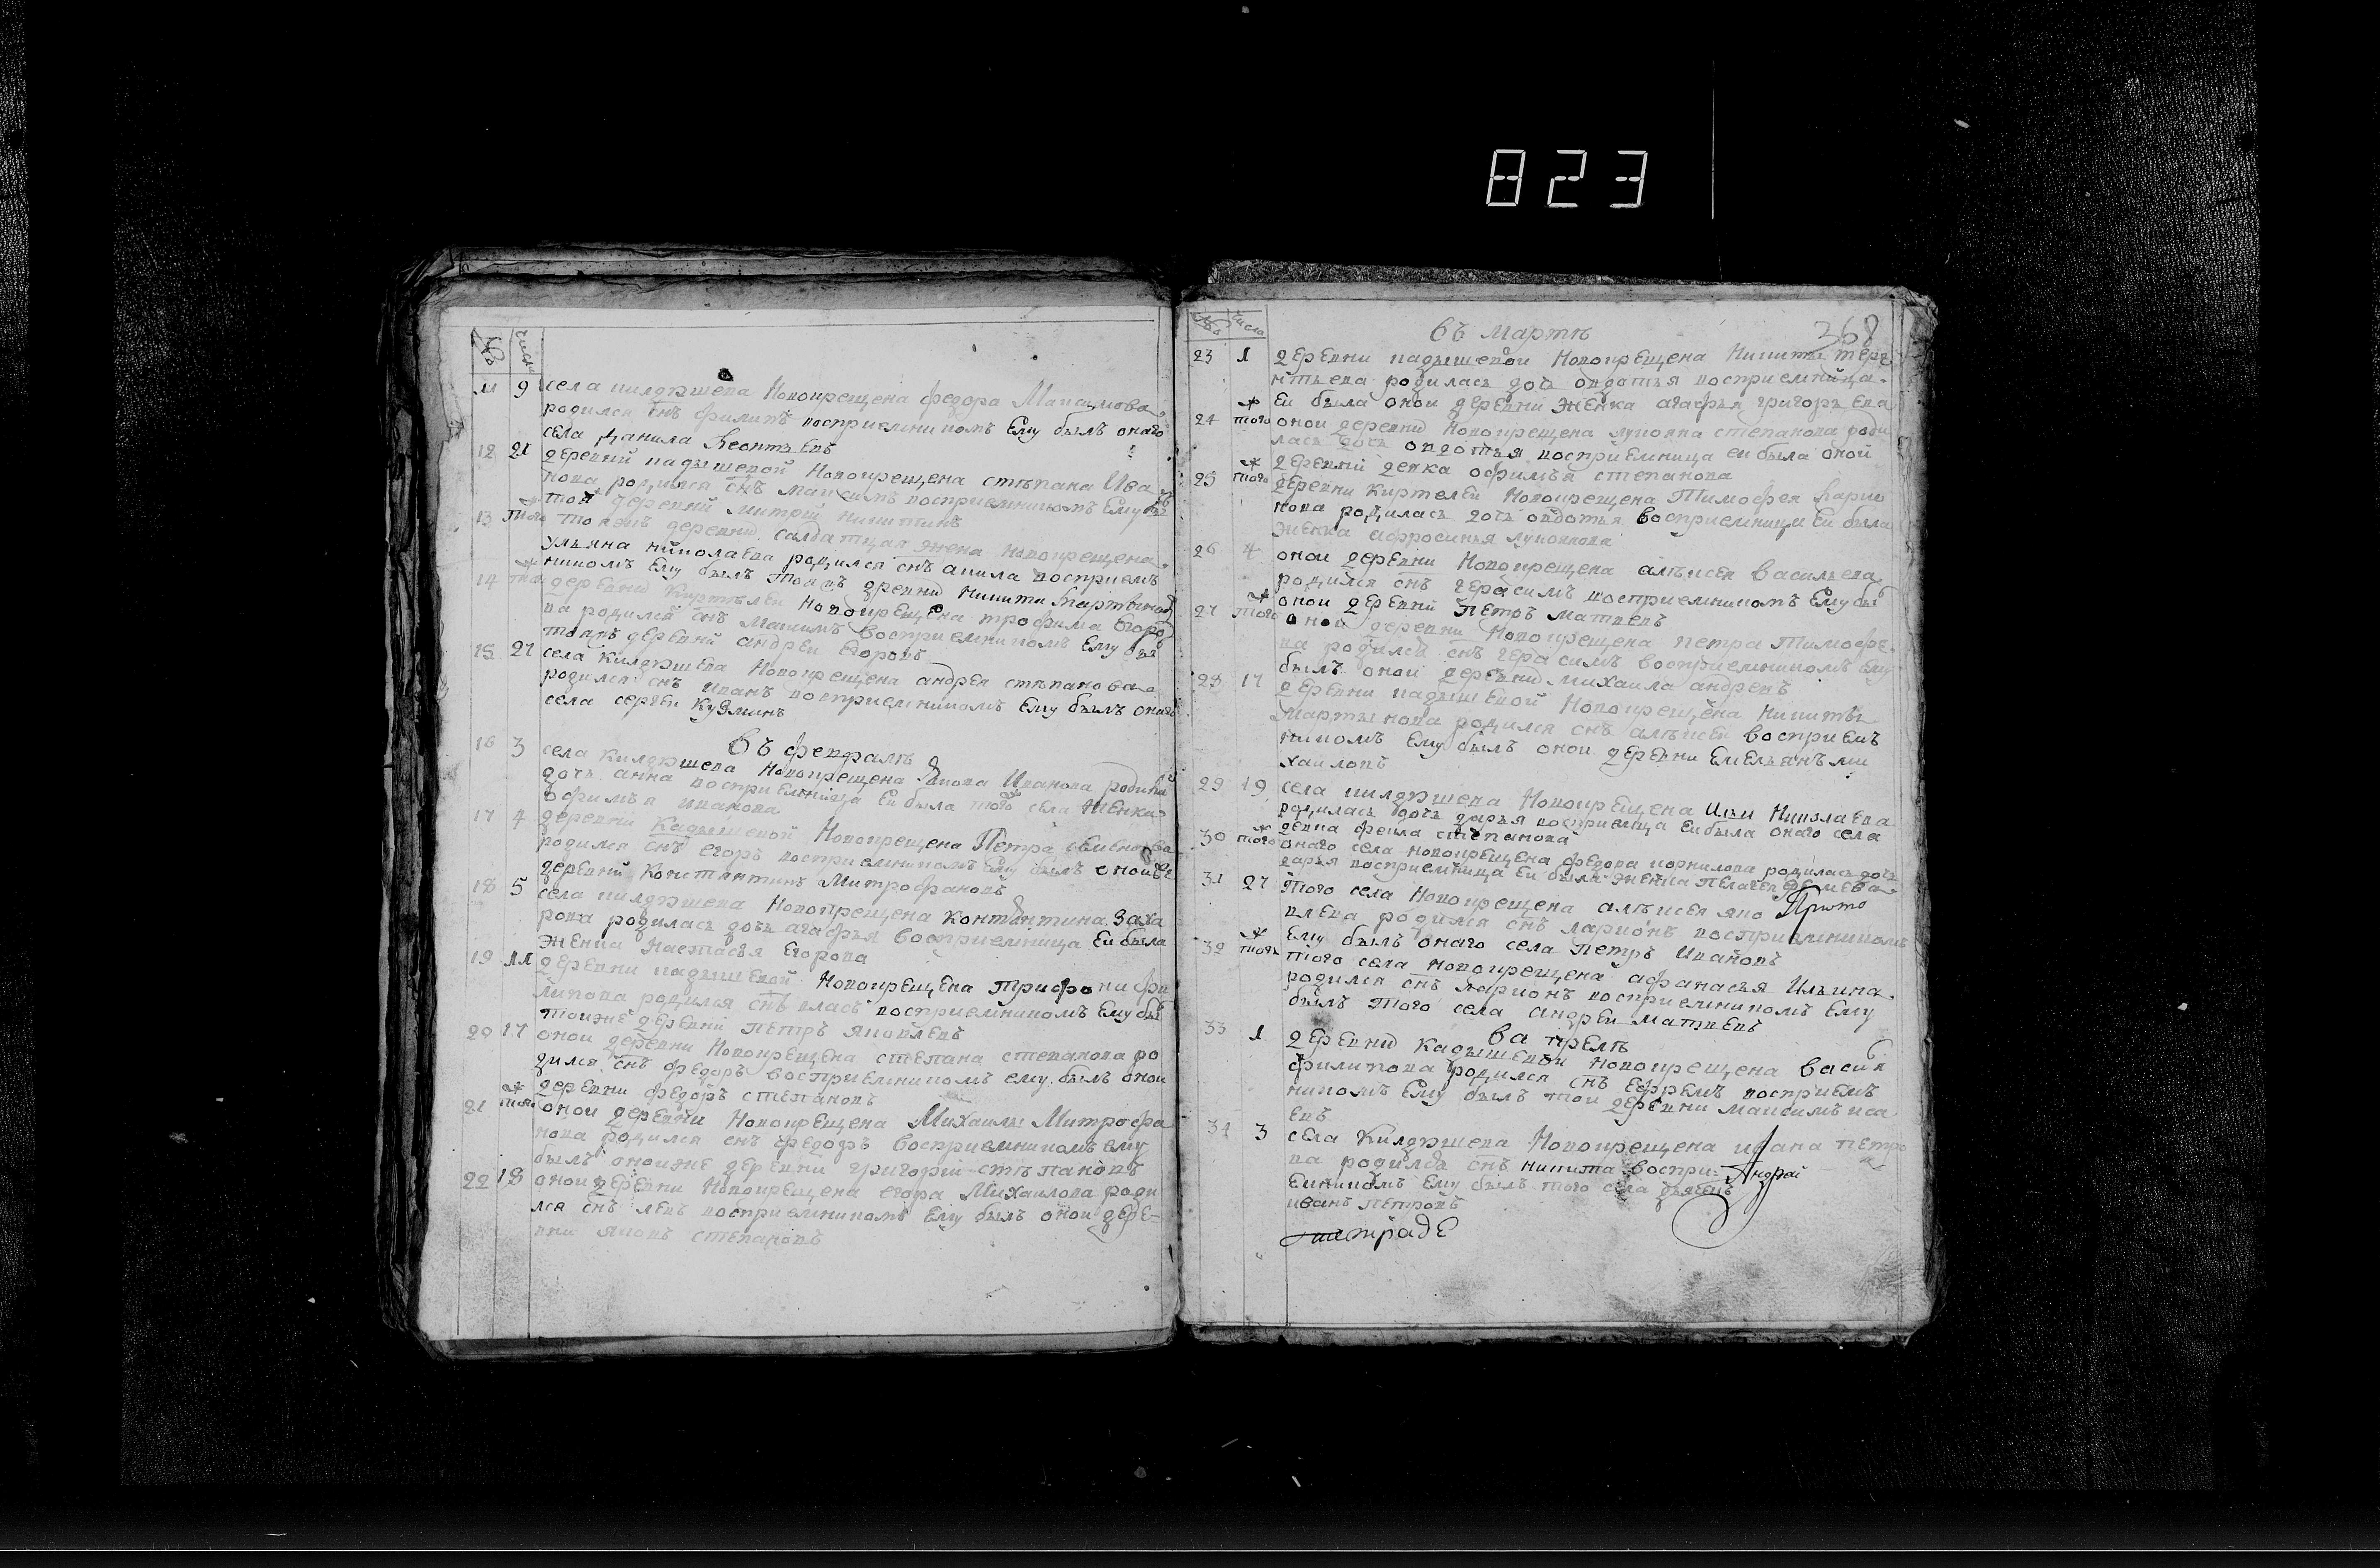 823
№ числа
11 9 села килдюшева Новокрещена федора Макацмова
родился снъ филипъ восприемникомъ Ему былъ онаго
села Данила Леонтьевъ
12 21 деревни кадышевой Новокрещена стѣпана Ива
нова родился снъ максимъ восприемникомъ Ему бы
той деревни митрий никитинъ
13 того тоеже деревни салдатцкая жена новокрещена
ульяна николаева родился снъ анила восприем
никомъ Ему былъ тоежъ древни никити мартынов
14 того деревни Киртѣлеи новокрещена трофима Егоро
ва родился снъ Макимъ восприемникомъ Ему бы
тоежъ деревни андреи Егоровъ
15 27 села килдюшева Новокрещена андрея стѣпанова
родился снъ иванъ восприемникомъ Ему былъ онаго
села сергеи кузминъ
Въ февралѣ
16 3 села килдюшева Новокрещена Якова Иванова родила
дочь анна восприемница Ей была того села женка
офимья иванова
17 4 деревни Кадышевой Новокрещена Петра семенова
родился снъ егоръ восприемникомъ Ему былъ оной
деревни Констянтинъ Митрофановъ
18 5 села килдюшева Новокрещена контянтина Заха
рова родилась дочь агафья восприемница Ей была
женка Настасья Егорова
19 11 деревни кадышевой Новокрещена трифони фи
липова родился снъ власъ восприемникомъ Ему бы
тоиже деревни петръ яковлевъ
20 17 оной деревни Новокрещена степана степанова ро
дился снъ федоръ восприемникомъ ему былъ оной
деревни федоръ степановъ
21 того оной деревни Новокрещена Михаилы Митрофа
нова родился снъ федоръ восприемникомъ ему
былъ оноиже деревни григорий стѣпановъ
22 18 оной деревни Новокрещена егора Михаилова роди
лся снъ левъ восприемникомъ Ему былъ оной дере
вни яковъ степановъ
№ числа
Въ мартѣ 368
23 1 деревни кадышевой Новокрещена Никиты тере
нтьева родилась дочь овдотья восприемница
Ей была оной деревни женка агафья григорьева
24 того оной деревни Новокрещена луконна степанова роди
лась дочь овдотья восприемница ей была оной
деревни девка офимья степанова
25 того деревни Киртелеи Новокрещена Тимофея Ларио
нова родилась дочь овдотья восприемница Ей была
женка афросинья луконнова
26 4 оной деревни Новокрещена алѣксея васильева
родился снъ герасимъ восприемникомъ Ему бы
оной деревни Петръ матвеевъ
27 того оной деревни Новокрещена петра Тимофе
ва родился снъ герасимъ восприемникомъ Ему
былъ оной деревни михаила андреевъ
28 17 деревни кадышевой Новокрещена Никиты
мартынова родился снъ алѣксей восприем
никомъ Ему былъ оной деревни Емельянъ ми
хаиловъ
29 19 села килдюшева Новокрещена Ильи Николаева
родилась дочь дарья восприемница Ей была онаго села
девка фекла степанова
30 того онаго села новокрещена федора корнилова родилась дочь
дарья восприемница Ей была женка пелагея
31 27 того села Новокрещена алѣксея яко
влева родился снъ ларионъ восприемникомъ
Ему былъ онаго села петръ Ивановъ
32 того того села новокрещена афанасья Ильина
родился снъ ларионъ восприемникомъ Ему
былъ того села андреи матвеевъ
Ва прелѣ
33 1 деревни кадышевой новокрещена васил
филипова родился снъ ефремъ восприем
никомъ Ему былъ той деревни максимъ иса
евъ
34 3 села Килдюшева Новокрещена ивана петро
ва родился снъ никита воспри
емникомъ Ему былъ того села дьячекъ
иванъ петровъ
Прото
Андрей